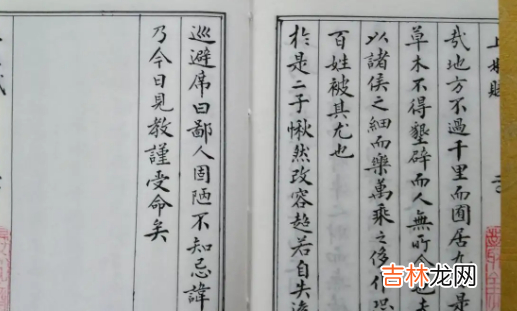 上林賦
哉地方不過千里而囿居九是
草木不得墾辟而人無所食也夫
以諸侯之細而樂萬乘之侈仆恐
百姓被其尤也
於是二子愀然改容超若自失逡
巡避席曰鄙人固陋不知忌諱
乃今日見教謹受命矣
吉林龙网